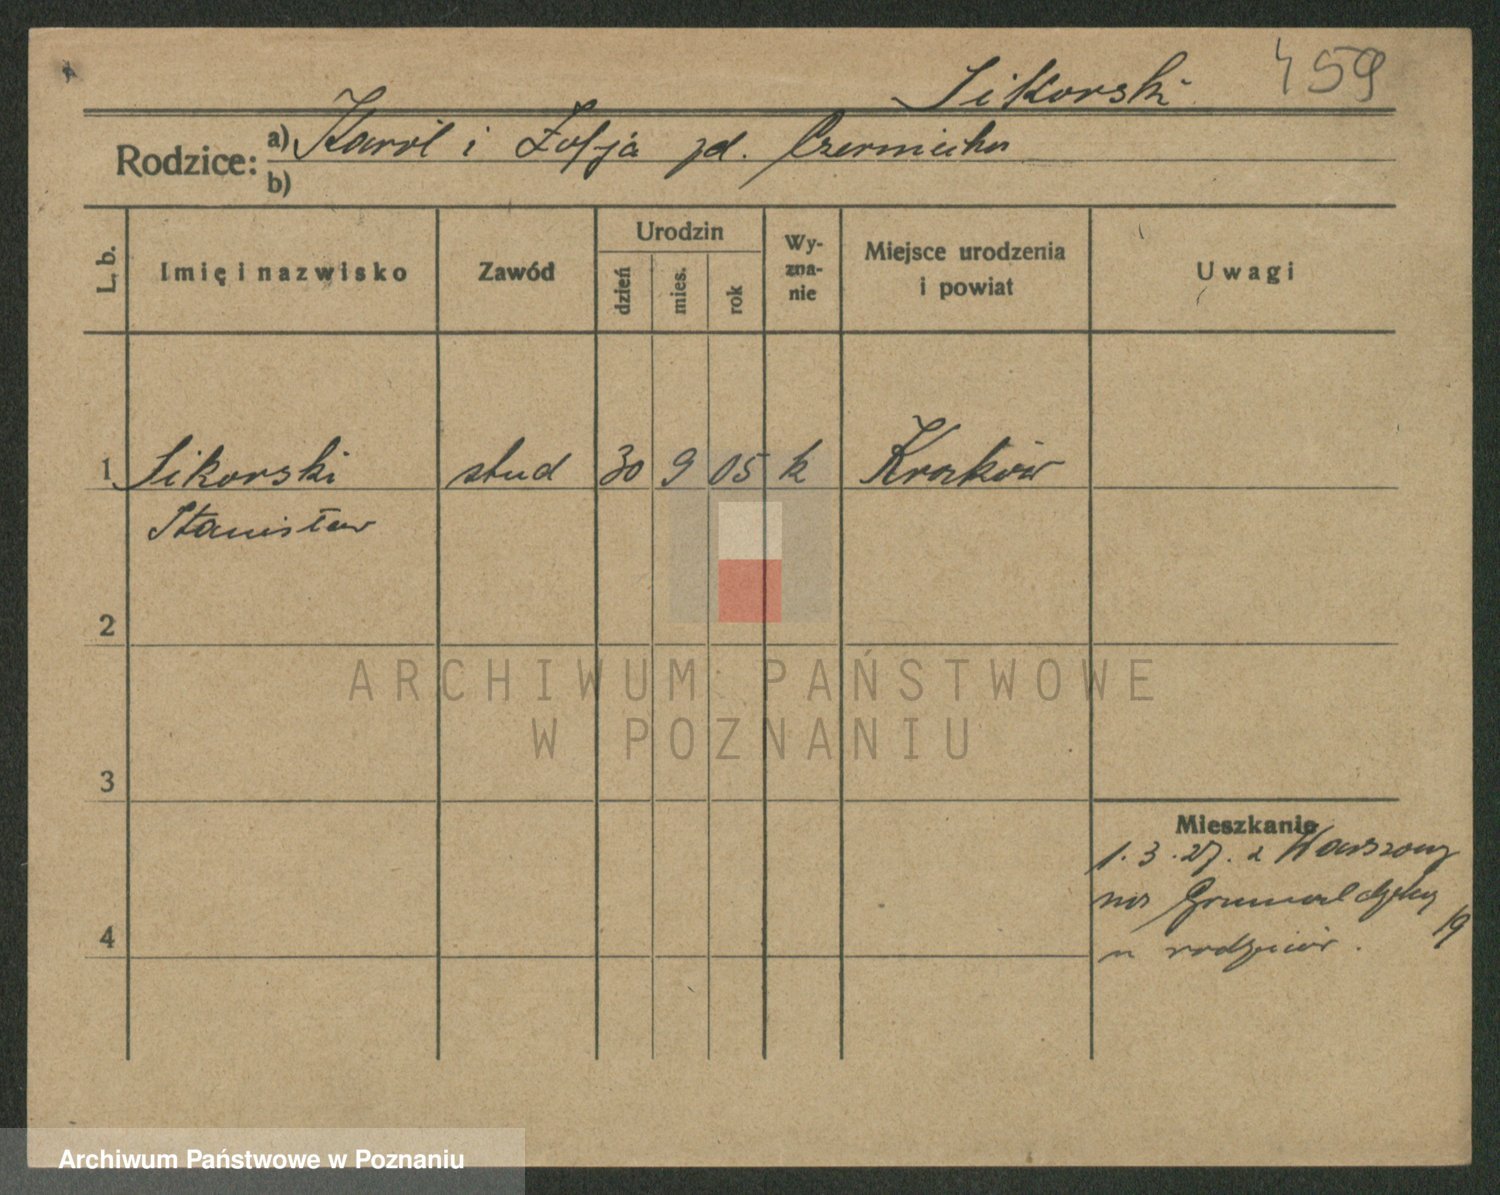 Sikorski 459
Rodzice: a) Karol i Zofja zd.
b)
L. b. Imię i nazwisko Zawód Urodzin dzień mies. rok Wy-zna-nie Miejsce urodzenia i powiat Uwagi
1 Sikorski stud 30 9 05 k Kraków
Stanisław
2
ARCHIWUM PAŃSTWOWE
W POZNANIU
3
Mieszkanie
1.3.27. z Warszawy
na
4
u rodziców. 19
Archiwum Państwowe w Poznaniu